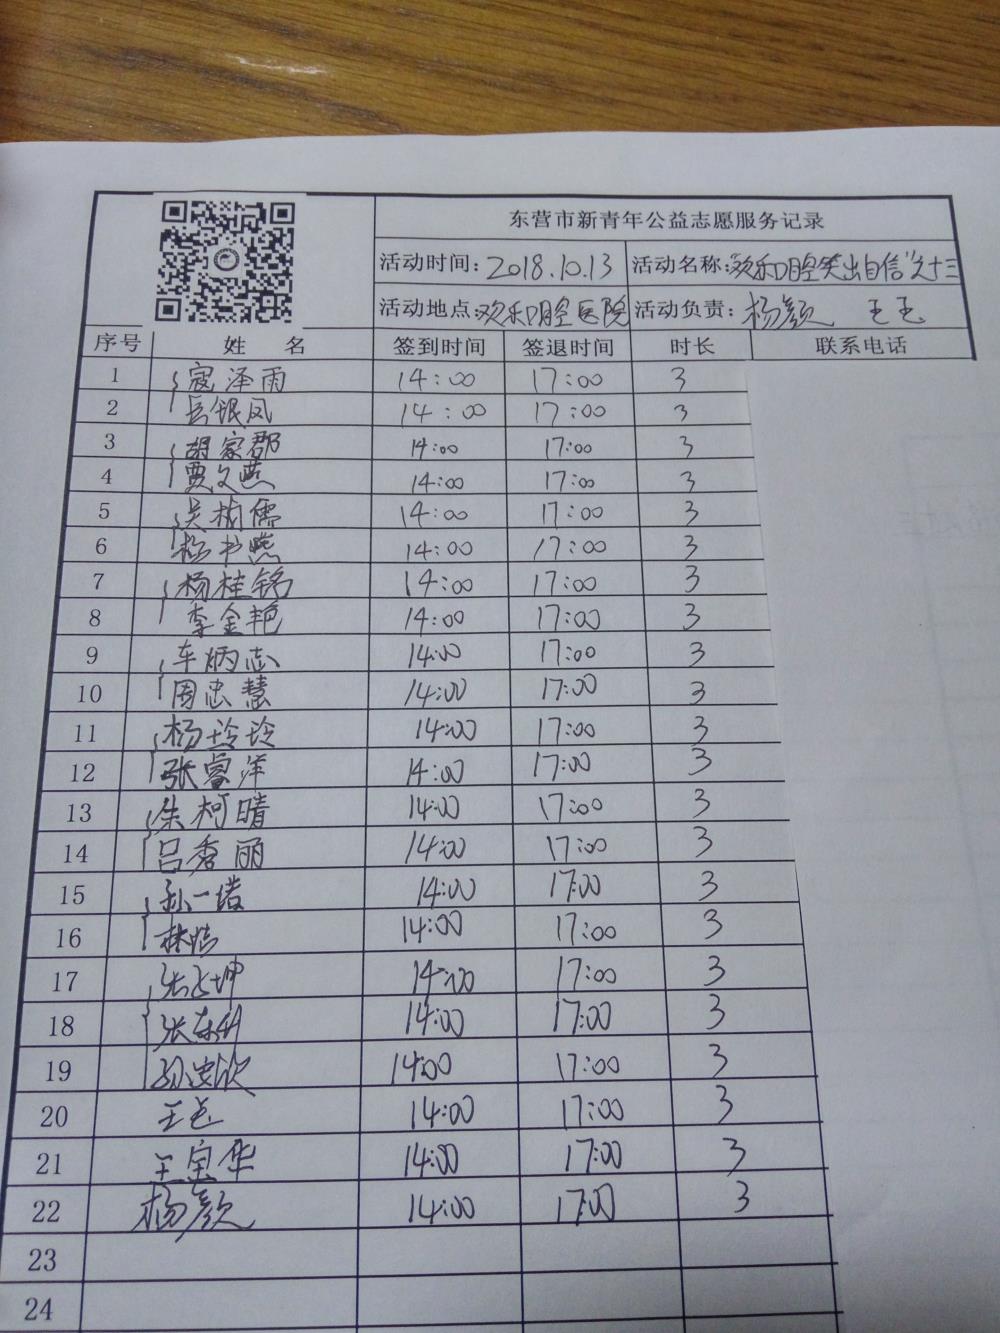 东营市新青年公益志愿服务记录
活动时间: 2018.10.13 活动名称: "欢乐口腔笑出自信"之十三
活动地点: 欢乐口腔医院 活动负责: 杨颜 王玉
序号 姓 名 签到时间 签退时间 时长 联系电话
1 寇泽雨 14:00 17:00 3
2 岳银凤 14:00 17:00 3
3 胡家郡 14:00 17:00 3
4 贾文燕 14:00 17:00 3
5 吴楠儒 14:00 17:00 3
6 14:00 17:00 3
7 杨桂铭 14:00 17:00 3
8 李金艳 14:00 17:00 3
9 车炳志 14:00 17:00 3
10 周忠慧 14:00 17:00 3
11 杨玲玲 14:00 17:00 3
12 张睿洋 14:00 17:00 3
13 朱柯晴 14:00 17:00 3
14 吕秀丽 14:00 17:00 3
15 孙一 14:00 17:00 3
16 林 14:00 17:00 3
17 坤 14:00 17:00 3
18 张东升 14:00 17:00 3
19 14:00 17:00 3
20 王玉 14:00 17:00 3
21 王宝华 14:00 17:00 3
22 杨颜 14:00 17:00 3
23
24